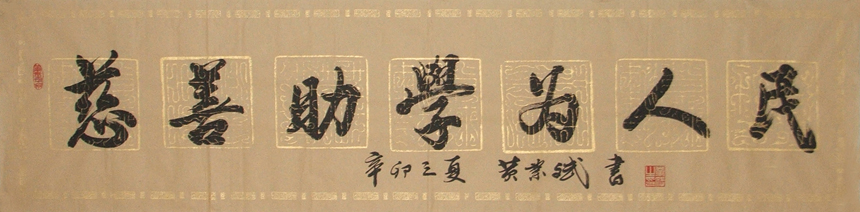 慈善助學为人民
辛卯之夏 黄業斌 書